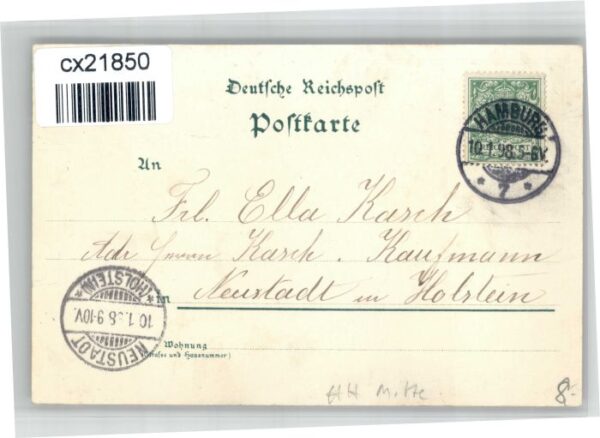 cx21850
Deutsche Reichspost
Postkarte
HAMBURG
10.1.98.5-6V.
* 7 *
An
Frl. Ella Karsch
Adr Herrn Karsch. Kaufmann
in Neustadt in Holstein
NEUSTADT
10.1.98 9-10V.
* (HOLSTEIN) *
Wohnung
(Strasse und Hausnummer)
HH Mitte
8.-